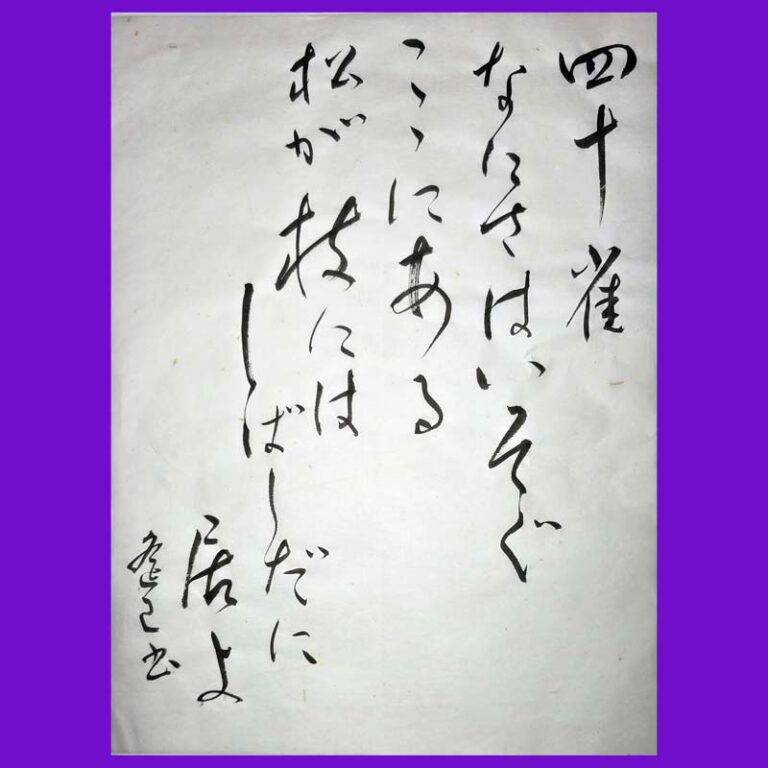 四十雀
なにさはいそぐ
ここにある
松が枝には
しばしだに
居よ
書